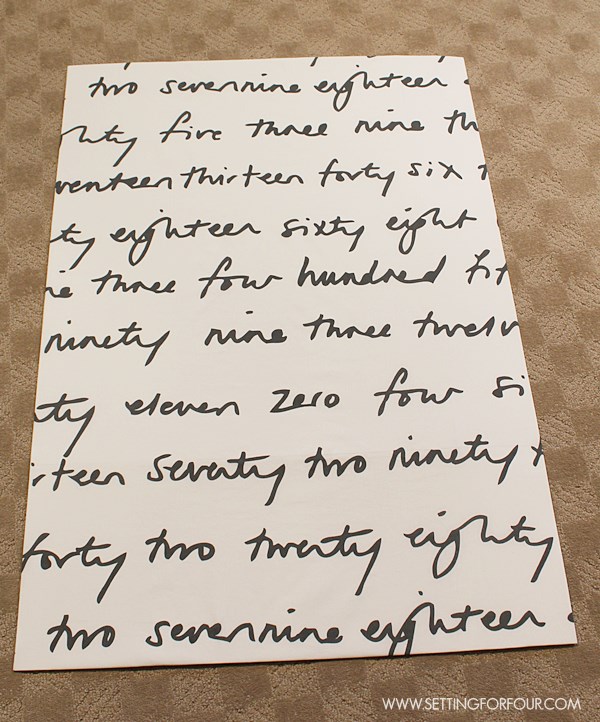 two seven nine eighteen
hty five three nine th
venteen thirteen forty six
ty eighteen sixty eight
ne three four hundred fif
ninety nine three twelv
nty eleven zero four si
irteen seventy two ninety
forty two twenty eighty
two seven nine eighteen
WWW.SETTINGFORFOUR.COM